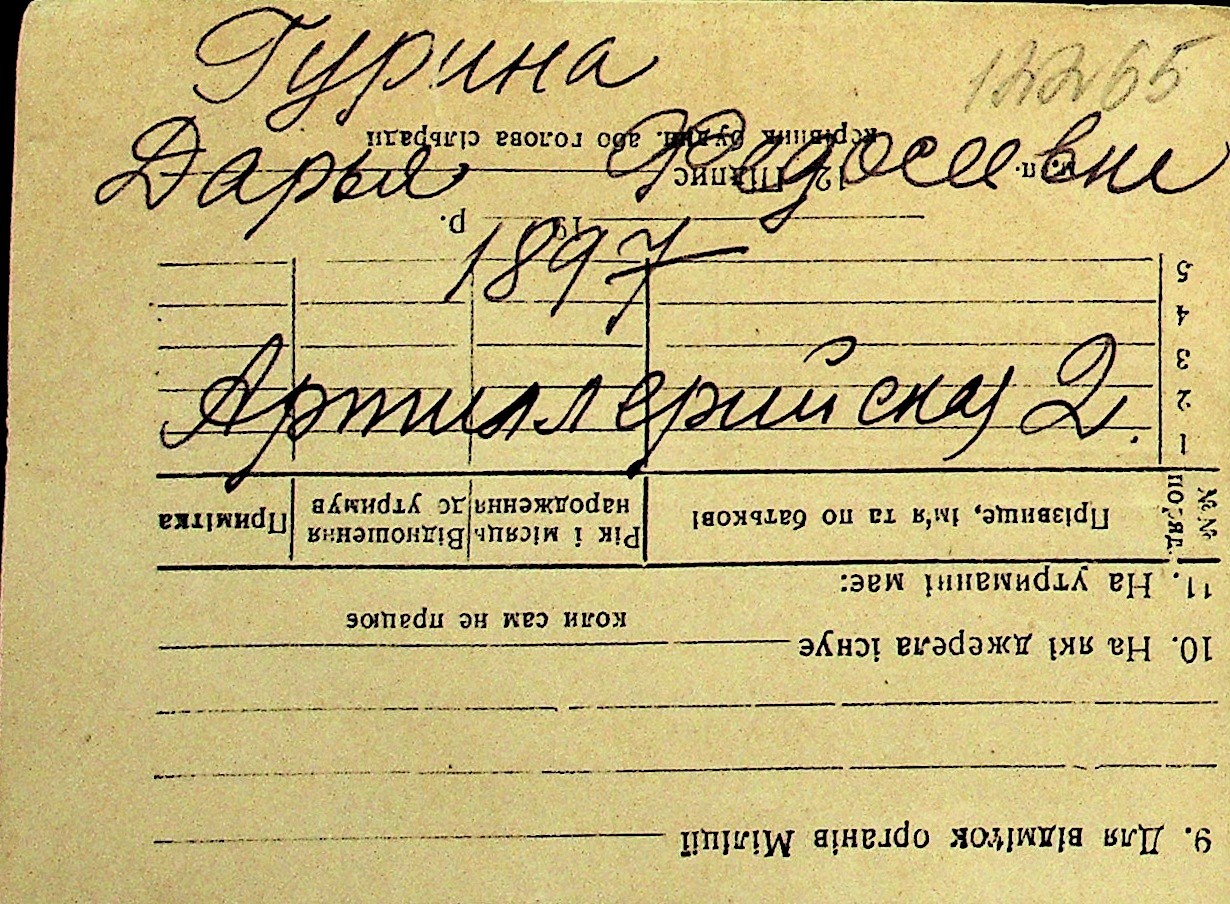 Гурина
12265
Дарья Федосеевна
1897
Артиллерийская 2.
9. Для відміток органів Міліції
10. На які джерела існує
коли сам не працює
11. На утриманні має:
№№ по ряд.
Прізвище, ім'я та по батькові
Рік і місяць народження
Відношення до утримув
Примітка
1
2
3
4
5
19 р.
12. Підпис
м. п.
керівник будин. або голова сільради